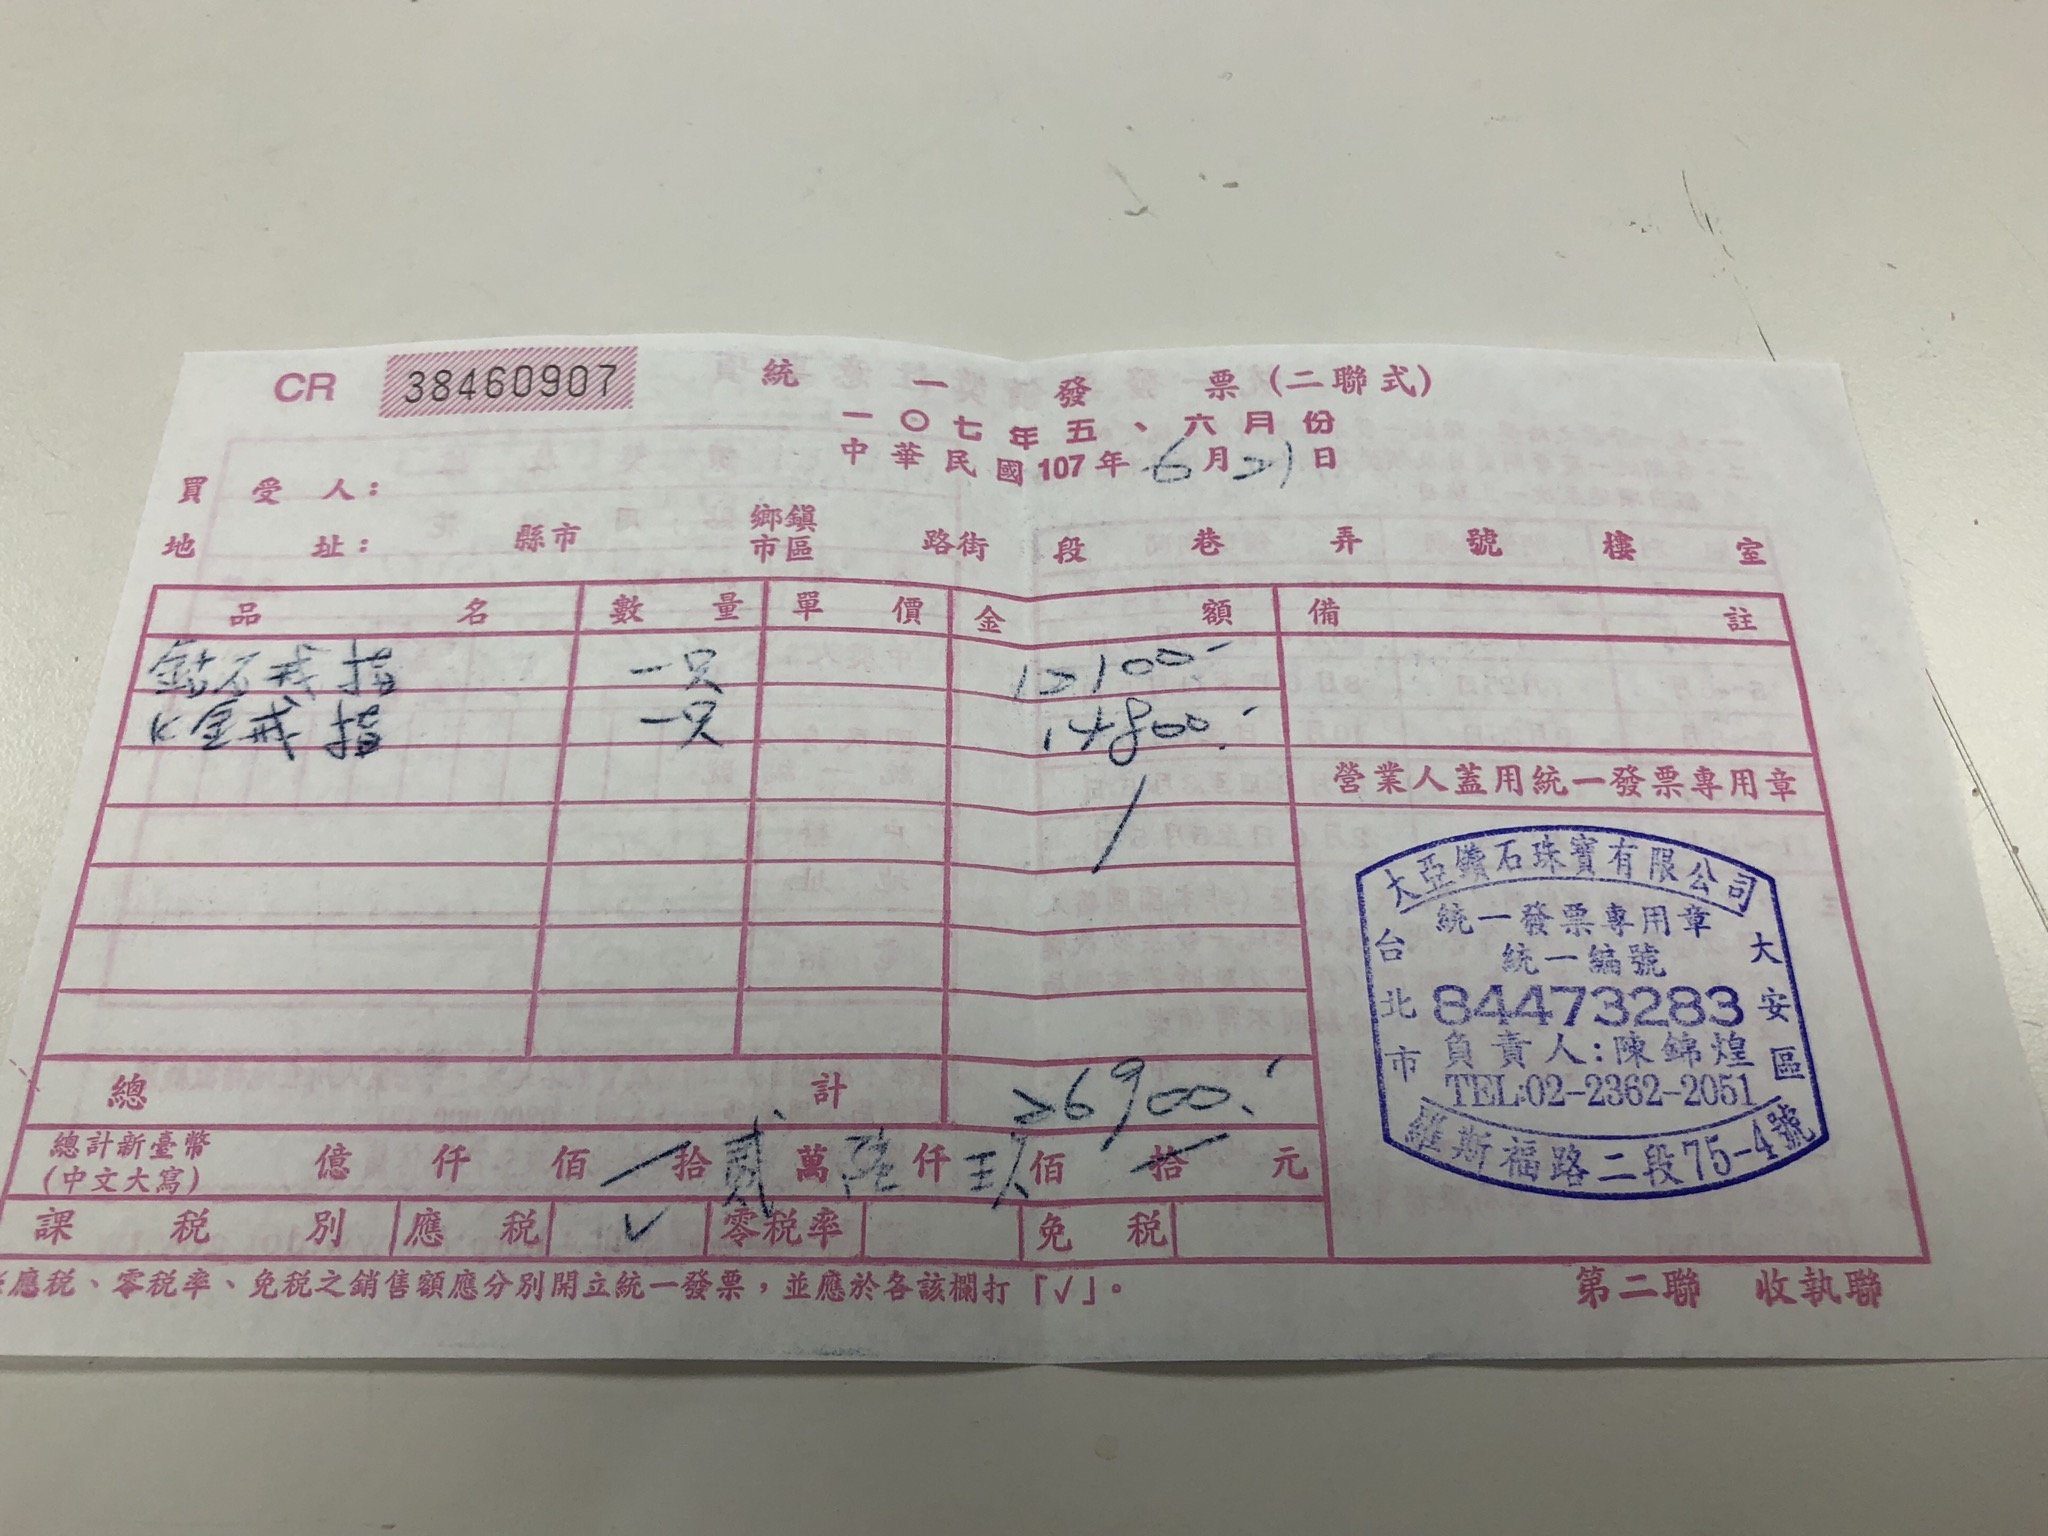 CR 38460907
統一發票(二聯式)
一〇七年五、六月份
中華民國107年6月21日
買受人：
地址： 縣市 鄉鎮市區 路街 段 巷 弄 號 樓 室
品名 數量 單價 金額 備註
鉆石戒指 一只 12100.-
K金戒指 一只 14800.-
營業人蓋用統一發票專用章
大亞鑽石珠寶有限公司
統一發票專用章
統一編號
84473283
負責人:陳錦煌
TEL:02-2362-2051
台北市 大安區
羅斯福路二段75-4號
總計 26900.-
總計新臺幣(中文大寫) 億 仟 佰 拾 貳 萬 陸 仟 玖 佰 拾 元
課稅別 應稅 ✓ 零稅率 免稅
應稅、零稅率、免稅之銷售額應分別開立統一發票，並應於各該欄打「√」。
第二聯 收執聯